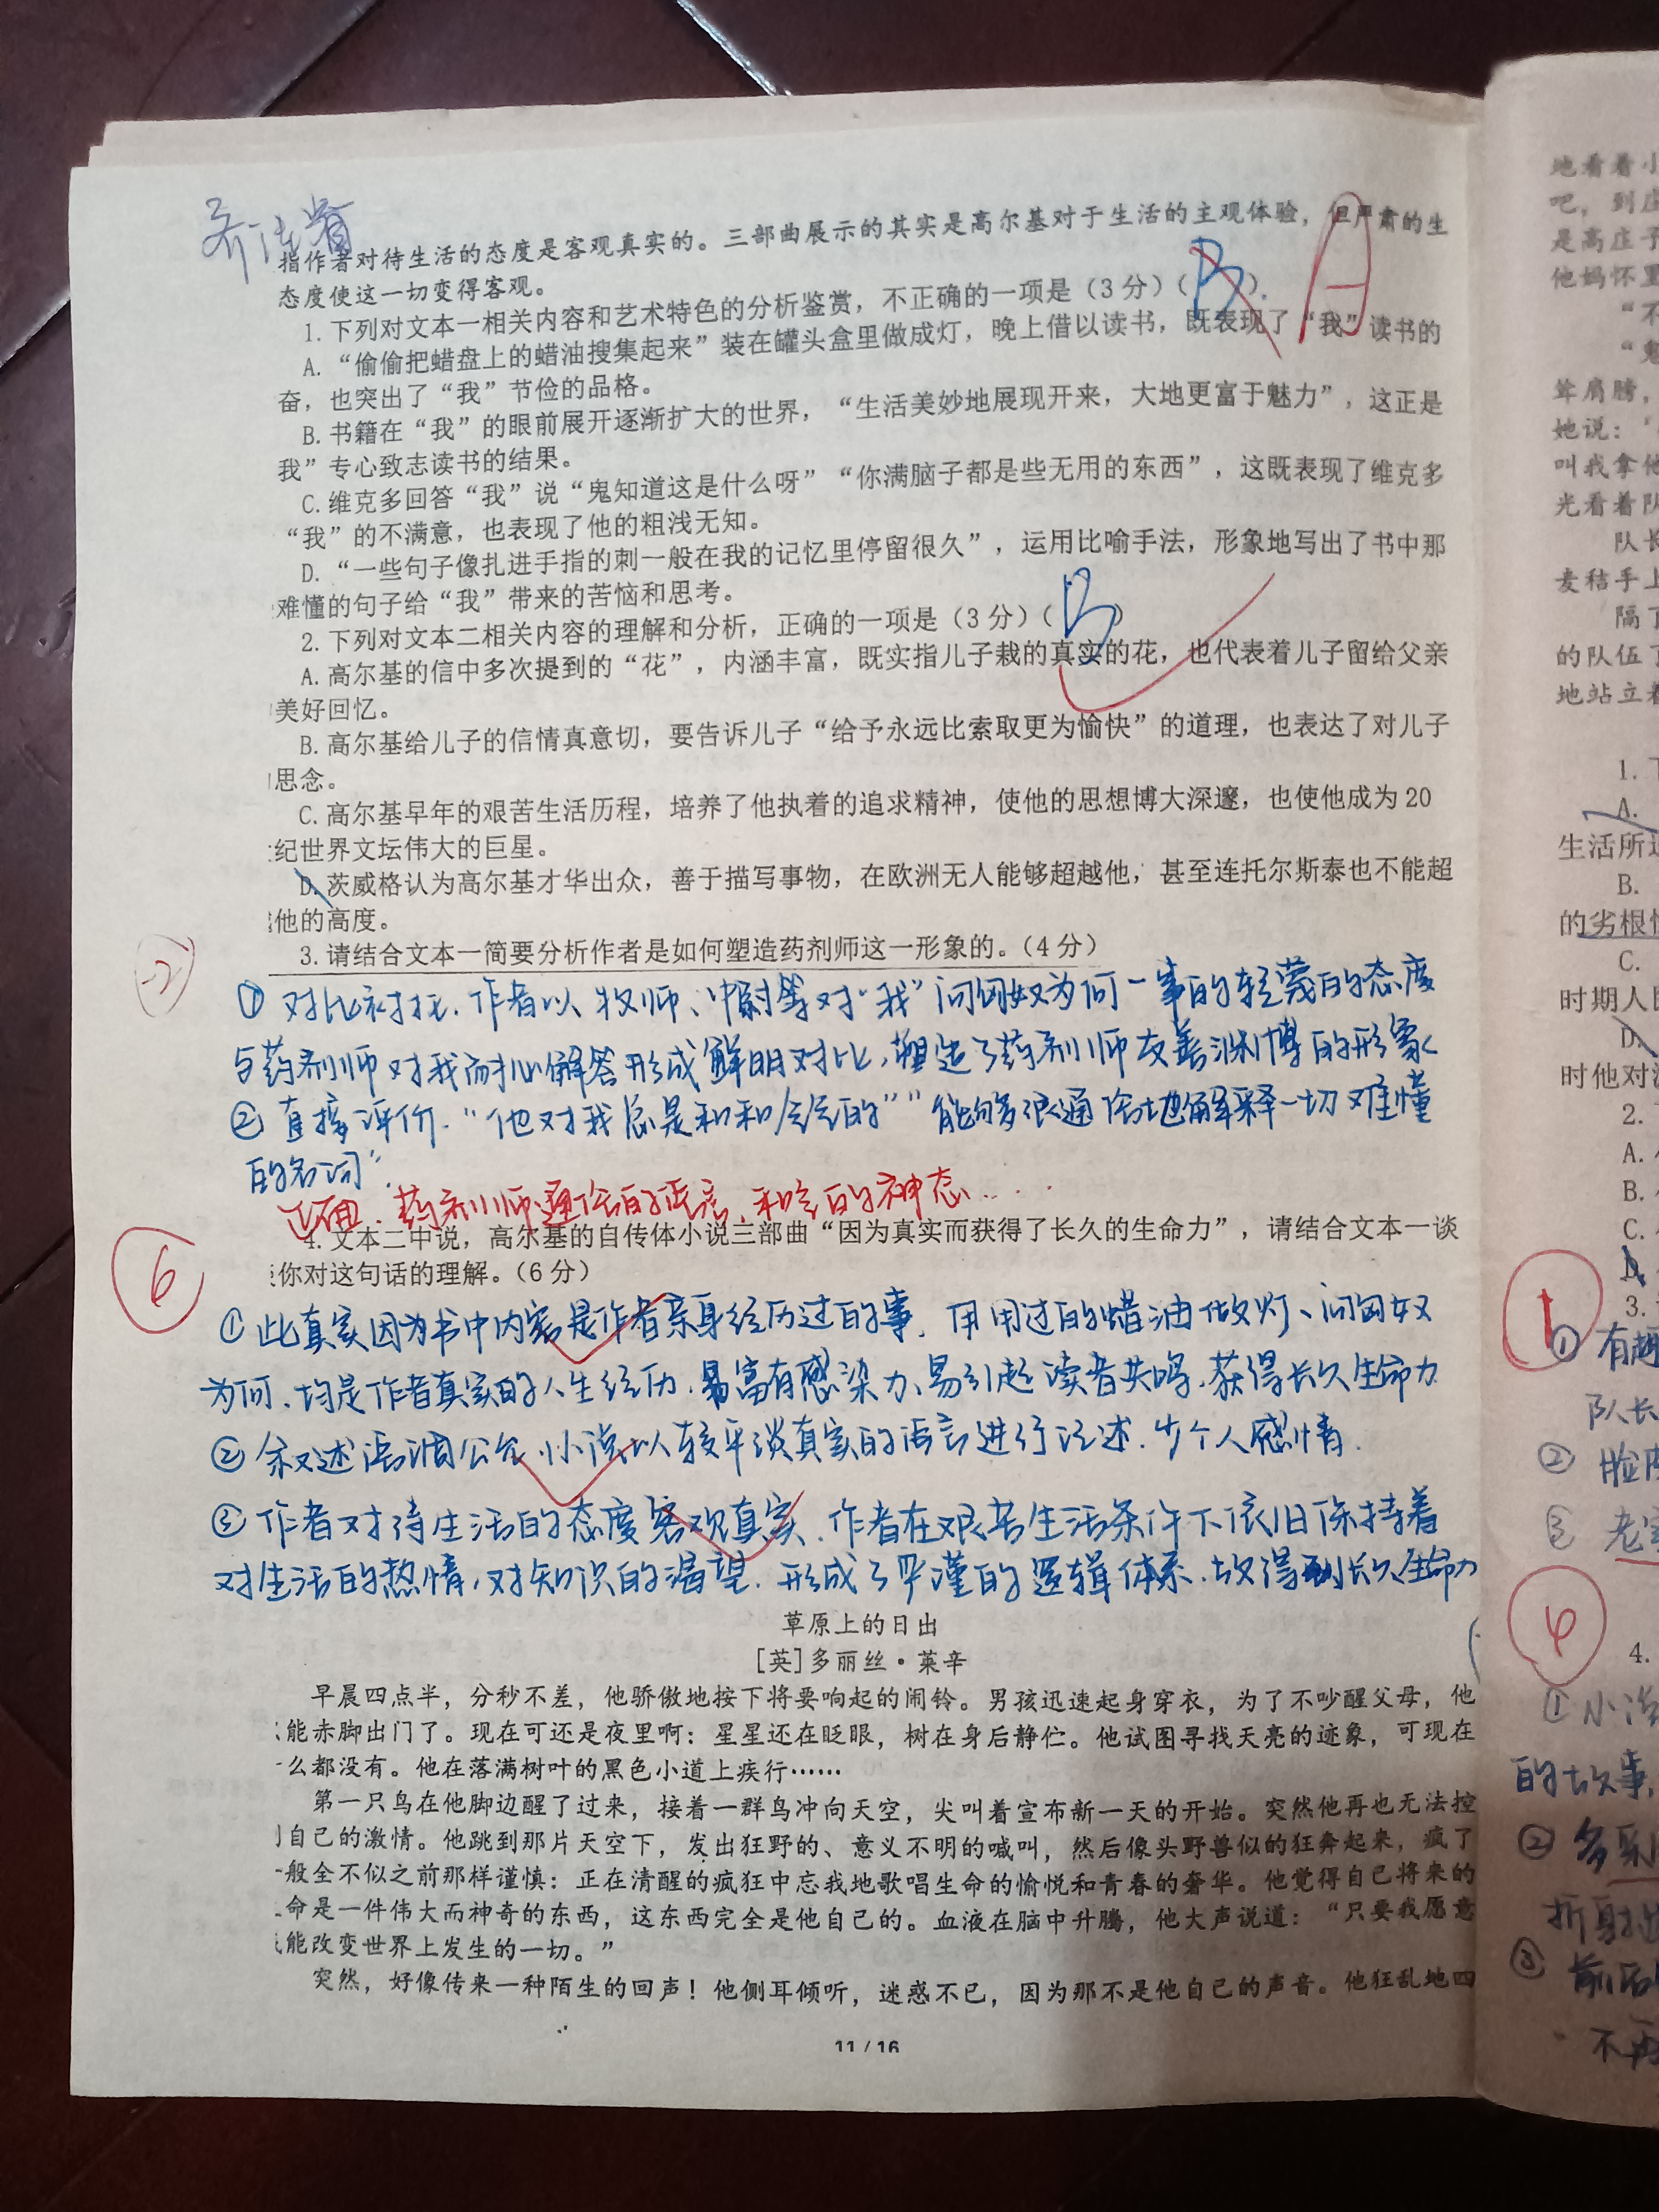 指作者对待生活的态度是客观真实的。三部曲展示的其实是高尔基对于生活的主观体验，但严肃的生
态度使这一切变得客观。
1.下列对文本一相关内容和艺术特色的分析鉴赏，不正确的一项是（3分）（B）. A
A.“偷偷把蜡盘上的蜡油搜集起来”装在罐头盒里做成灯，晚上借以读书，既表现了“我”读书的
奋，也突出了“我”节俭的品格。
B.书籍在“我”的眼前展开逐渐扩大的世界，“生活美妙地展现开来，大地更富于魅力”，这正是
我”专心致志读书的结果。
C.维克多回答“我”说“鬼知道这是什么呀”“你满脑子都是些无用的东西”，这既表现了维克多
“我”的不满意，也表现了他的粗浅无知。
D.“一些句子像扎进手指的刺一般在我的记忆里停留很久”，运用比喻手法，形象地写出了书中那
难懂的句子给“我”带来的苦恼和思考。
2.下列对文本二相关内容的理解和分析，正确的一项是（3分）（B）
A.高尔基的信中多次提到的“花”，内涵丰富，既实指儿子栽的真实的花，也代表着儿子留给父亲
美好回忆。
B.高尔基给儿子的信情真意切，要告诉儿子“给予永远比索取更为愉快”的道理，也表达了对儿子
思念。
C.高尔基早年的艰苦生活历程，培养了他执着的追求精神，使他的思想博大深邃，也使他成为20
纪世界文坛伟大的巨星。
D.茨威格认为高尔基才华出众，善于描写事物，在欧洲无人能够超越他，甚至连托尔斯泰也不能超
他的高度。
-2
3.请结合文本一简要分析作者是如何塑造药剂师这一形象的。（4分）
①对比衬托.作者以牧师、中尉等对“我”问匈奴为何一事的轻蔑的态度
与药剂师对我耐心解答形成鲜明对比,塑造了药剂师友善渊博的形象
②直接评价.“他对我总是和和气气的”“能够很通俗地解释一切难懂
的名词”.
正面.药剂师通俗的语言、和气的神态....
4.文本二中说，高尔基的自传体小说三部曲“因为真实而获得了长久的生命力”，请结合文本一谈
你对这句话的理解。（6分）
6
①此真实因为书中内容是作者亲身经历过的事.用用过的蜡油做灯、问匈奴
为何.均是作者真实的人生经历.易富有感染力、易引起读者共鸣.获得长久生命力
②叙述语调公允.小说以较平淡真实的语言进行记述.少个人感情.
③作者对待生活的态度客观真实.作者在艰苦生活条件下依旧保持着
对生活的热情,对知识的渴望.形成了严谨的逻辑体系.故得到长久生命力
草原上的日出
[英]多丽丝·莱辛
早晨四点半，分秒不差，他骄傲地按下将要响起的闹铃。男孩迅速起身穿衣，为了不吵醒父母，他
能赤脚出门了。现在可还是夜里啊：星星还在眨眼，树在身后静伫。他试图寻找天亮的迹象，可现在
么都没有。他在落满树叶的黑色小道上疾行……
第一只鸟在他脚边醒了过来，接着一群鸟冲向天空，尖叫着宣布新一天的开始。突然他再也无法控
自己的激情。他跳到那片天空下，发出狂野的、意义不明的喊叫，然后像头野兽似的狂奔起来，疯了
般全不似之前那样谨慎：正在清醒的疯狂中忘我地歌唱生命的愉悦和青春的奢华。他觉得自己将来的
命是一件伟大而神奇的东西，这东西完全是他自己的。血液在脑中升腾，他大声说道：“只要我愿意
能改变世界上发生的一切。”
突然，好像传来一种陌生的回声！他侧耳倾听，迷惑不已，因为那不是他自己的声音。他狂乱地四
11/16
地看着小
吧，到庄
是高庄子
他妈怀里
“不
“鬼
耸肩膀，
她说：
叫我拿他
光看着队
队长
麦秸手上
隔了
的队伍了
地站立着
1.
A.
生活所
B.
的劣根性
C.
时期人民
D.
时他对
2.
A.
B.
C.
D.
3.
1
①有趣
队长
②脸
③老
4
4.
①小说
的故事,
②多
折射出
③前后
不再